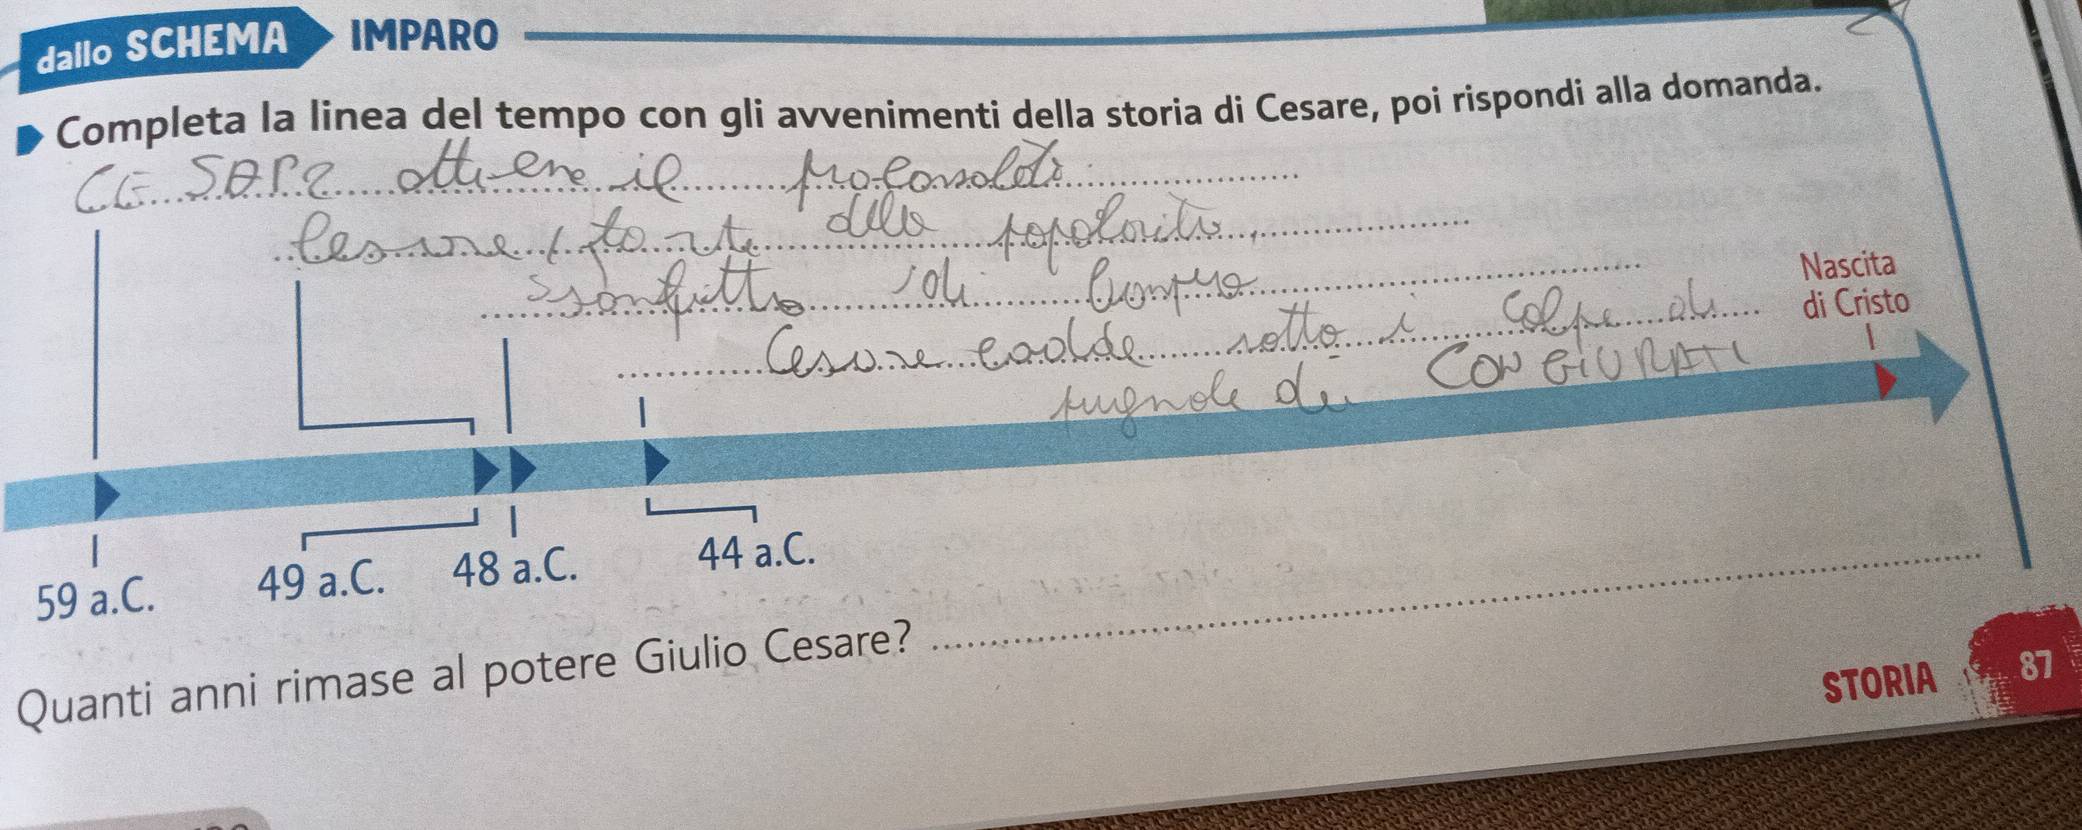 dallo SCHEMA IMPARO
Completa la linea del tempo con gli avvenimenti della storia di Cesare, poi rispondi alla domanda.
CESARE ottiene il proconsolato
Cesare forte della popolarità
sconfitto di Pompeo
Cesare cadde sotto i colpi di
pugnale dei CONGIURATI
Nascita
di Cristo
59 a.C.
49 a.C.
48 a.C.
44 a.C.
Quanti anni rimase al potere Giulio Cesare?
STORIA 87